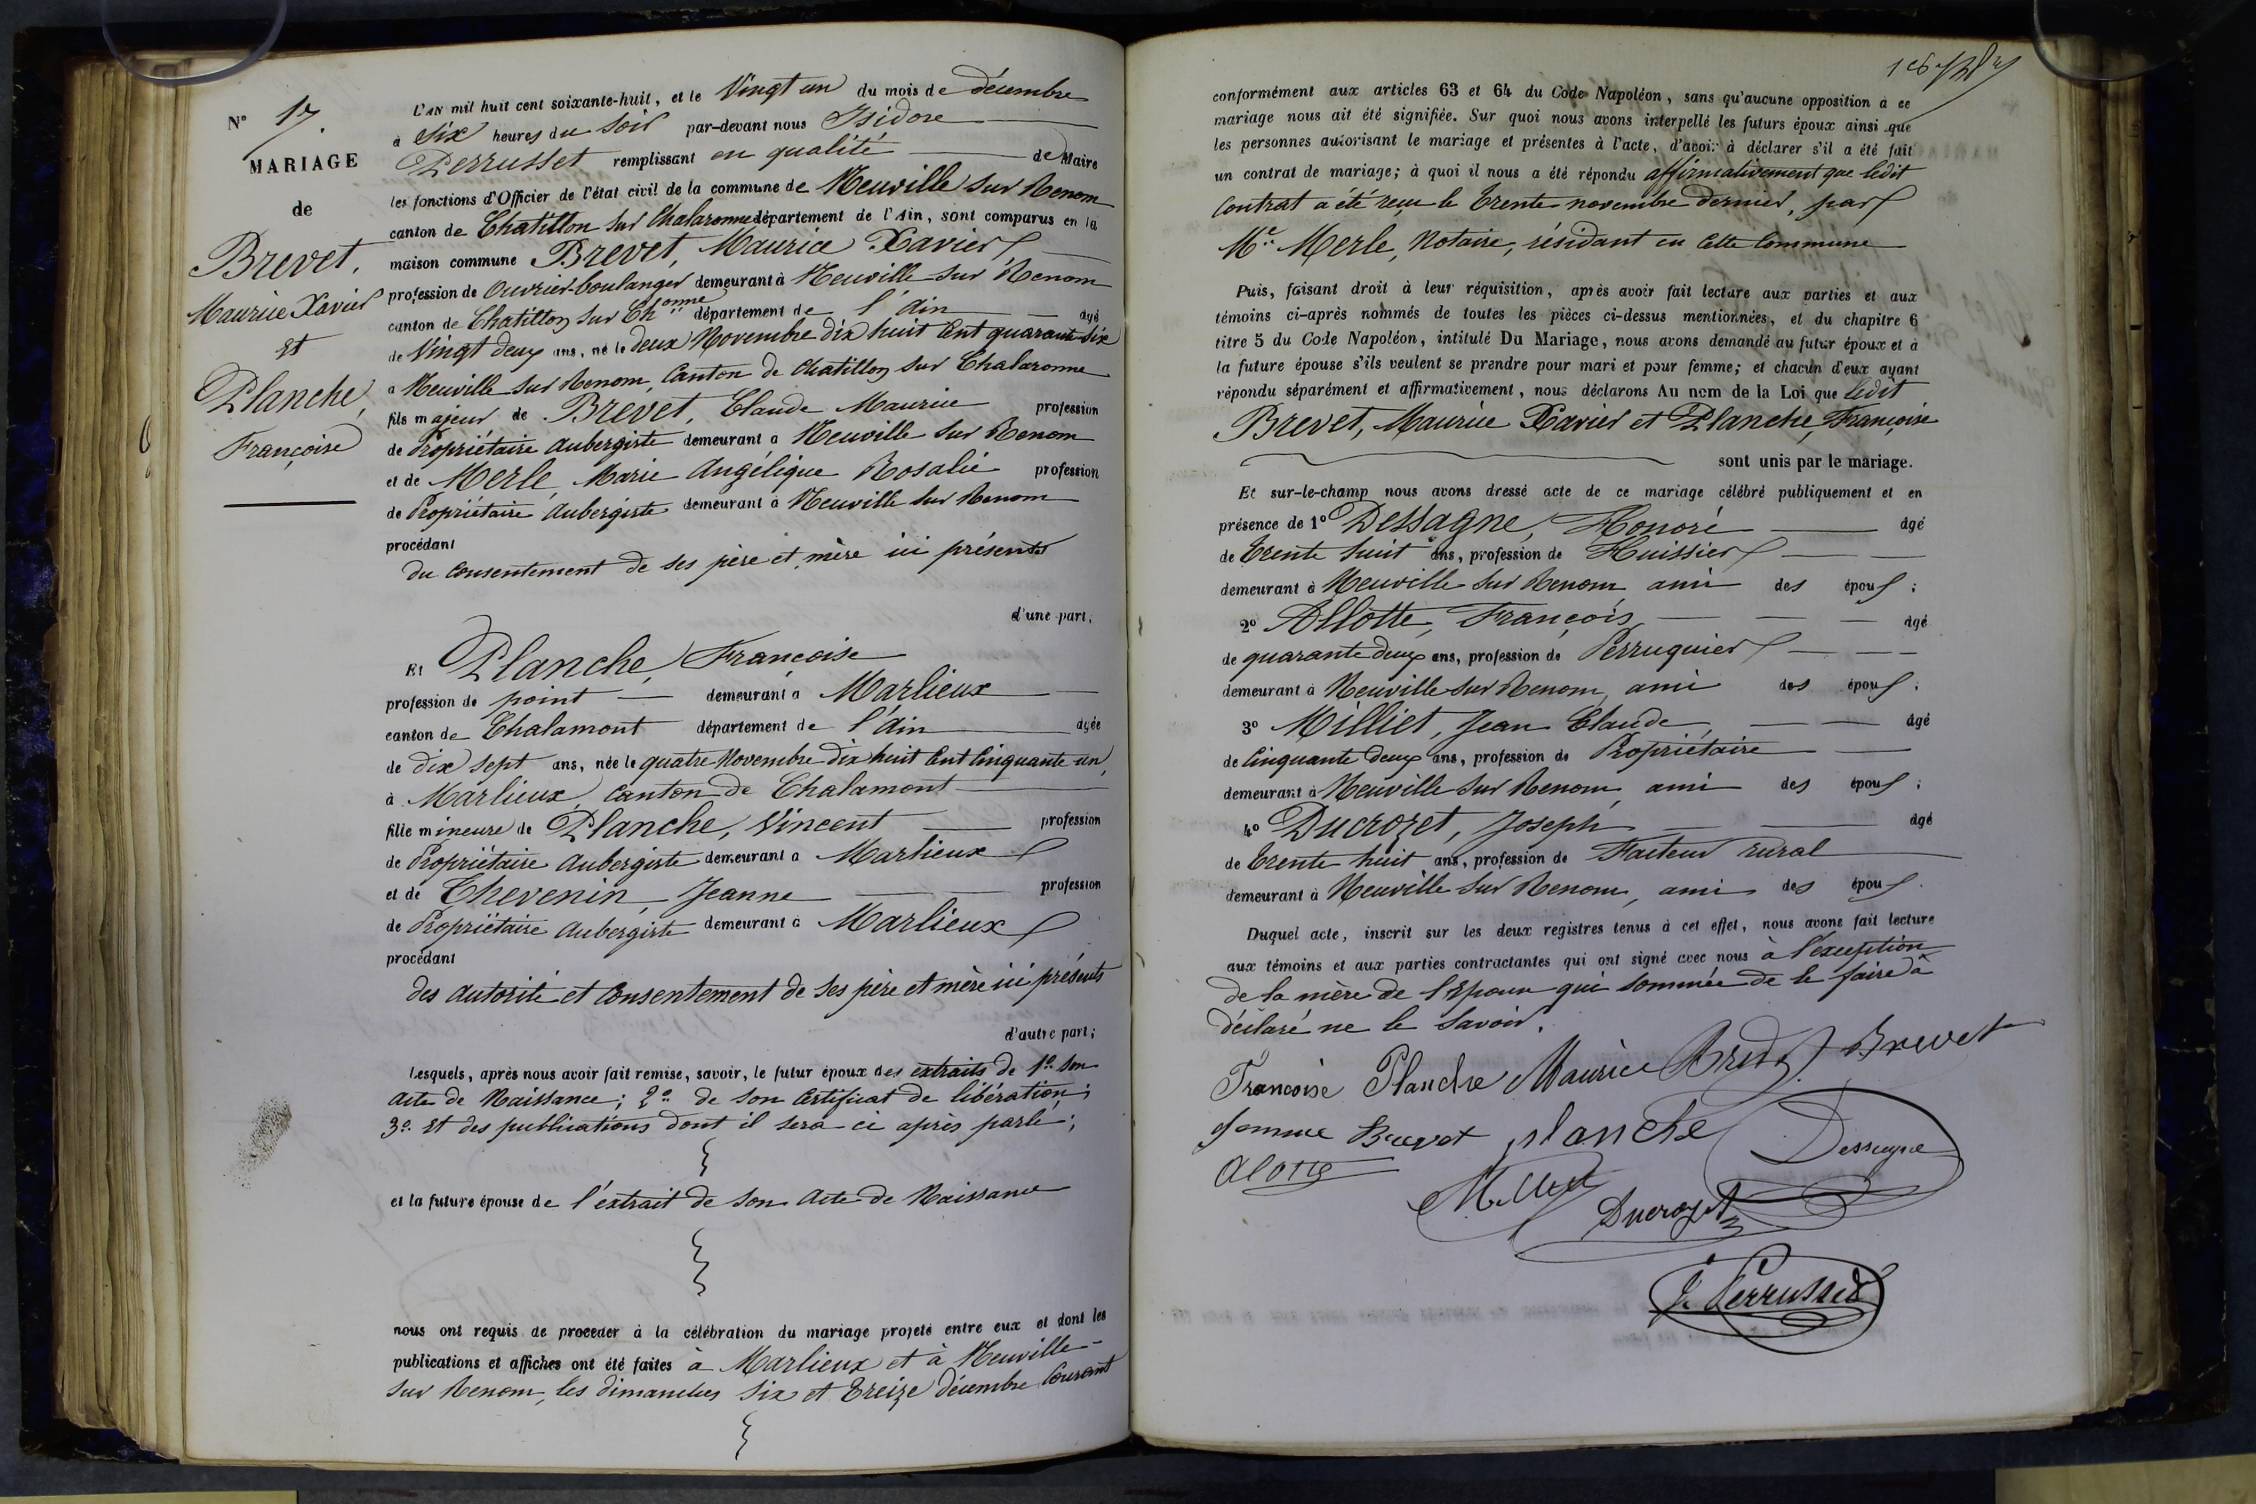 N° 17.
MARIAGE
de
Brevet,
Maurice Xavier
et
Planche,
Françoise
L'AN mil huit cent soixante-huit, et le Vingt un du mois de décembre
à Six heures du Soir par-devant nous Isidore
Perrusset remplissant en qualité de Maire
les fonctions d'Officier de l'état civil de la commune de Neuville sur Renom
canton de Chatillon sur Chalaronne département de l'Ain, sont comparus en la
maison commune Brevet, Maurice Xavier
profession de Ouvrier-boulanger demeurant à Neuville sur Renom
canton de Chatillon sur Ch onne département de l'Ain âgé
de Vingt deux ans, né le deux Novembre dix huit Cent quarante-Six
à Neuville sur Renom, Canton de Chatillon sur Chalaronne
fils majeur de Brevet, Claude Maurice profession
de Propriétaire Aubergiste demeurant à Neuville sur Renom
et de Merle, Marie Angélique Rosalie profession
de Propriétaire Aubergiste demeurant à Neuville sur Renom
procédant
du Consentement de ses père et mère ici présents
d'une part,
Et Planche, Françoise
profession de point demeurant à Marlieux
canton de Chalamont département de l'Ain âgée
de dix sept ans, née le quatre Novembre dix huit Cent Cinquante un,
à Marlieux, Canton de Chalamont
fille mineure de Planche, Vincent profession
de Propriétaire Aubergiste demeurant à Marlieux
et de Thevenin, Jeanne profession
de Propriétaire Aubergiste demeurant à Marlieux
procédant
des autorité et Consentement de ses père et mère ici présents
d'autre part;
Lesquels, après nous avoir fait remise, savoir, le futur époux des extraits de 1° son
Acte de Naissance; 2° de son Certificat de libération;
3° Et des publications dont il sera ci après parlé;
et la future épouse de l'extrait de son Acte de Naissance
nous ont requis de procéder à la célébration du mariage projeté entre eux et dont les
publications et affiches ont été faites à Marlieux et à Neuville-
sur Renom, les dimanches Six et Treize décembre Courant
conformément aux articles 63 et 64 du Code Napoléon, sans qu'aucune opposition à ce
mariage nous ait été signifiée. Sur quoi nous avons interpellé les futurs époux ainsi que
les personnes autorisant le mariage et présentes à l'acte, d'avoir à déclarer s'il a été fait
un contrat de mariage; à quoi il nous a été répondu affirmativement que ledit
Contrat a été reçu le Trente novembre dernier, par
Me Merle, Notaire, résidant en Cette Commune
Puis, faisant droit à leur réquisition, après avoir fait lecture aux parties et aux
témoins ci-après nommés de toutes les pièces ci-dessus mentionnées, et du chapitre 6
titre 5 du Code Napoléon, intitulé Du Mariage, nous avons demandé au futur époux et à
la future épouse s'ils veulent se prendre pour mari et pour femme; et chacun d'eux ayant
répondu séparément et affirmativement, nous déclarons Au nom de la Loi que ledit
Brevet, Maurice Xavier et Planche, Françoise
sont unis par le mariage.
Et sur-le-champ nous avons dressé acte de ce mariage célébré publiquement et en
présence de 1° Dessagne, Honoré âgé
de Trente huit ans, profession de Huissier
demeurant à Neuville sur Renom ami des époux;
2° Allotte, François, âgé
de quarante deux ans, profession de Perruquier
demeurant à Neuville sur Renom, ami des époux;
3° Milliet, Jean Claude, âgé
de Cinquante deux ans, profession de Propriétaire
demeurant à Neuville sur Renom, ami des époux;
4° Ducrozet, Joseph âgé
de Trente huit ans, profession de Facteur rural
demeurant à Neuville sur Renom, ami des époux.
Duquel acte, inscrit sur les deux registres tenus à cet effet, nous avons fait lecture
aux témoins et aux parties contractantes qui ont signé avec nous à l'exception
de la mère de l'Epoux qui sommée de le faire à
déclaré ne le Savoir.
Françoise Planche Maurice Brevet Brevet
femme Brevet planche Dessagne
alotte
Milliet
Ducrozet
Je Perrusset